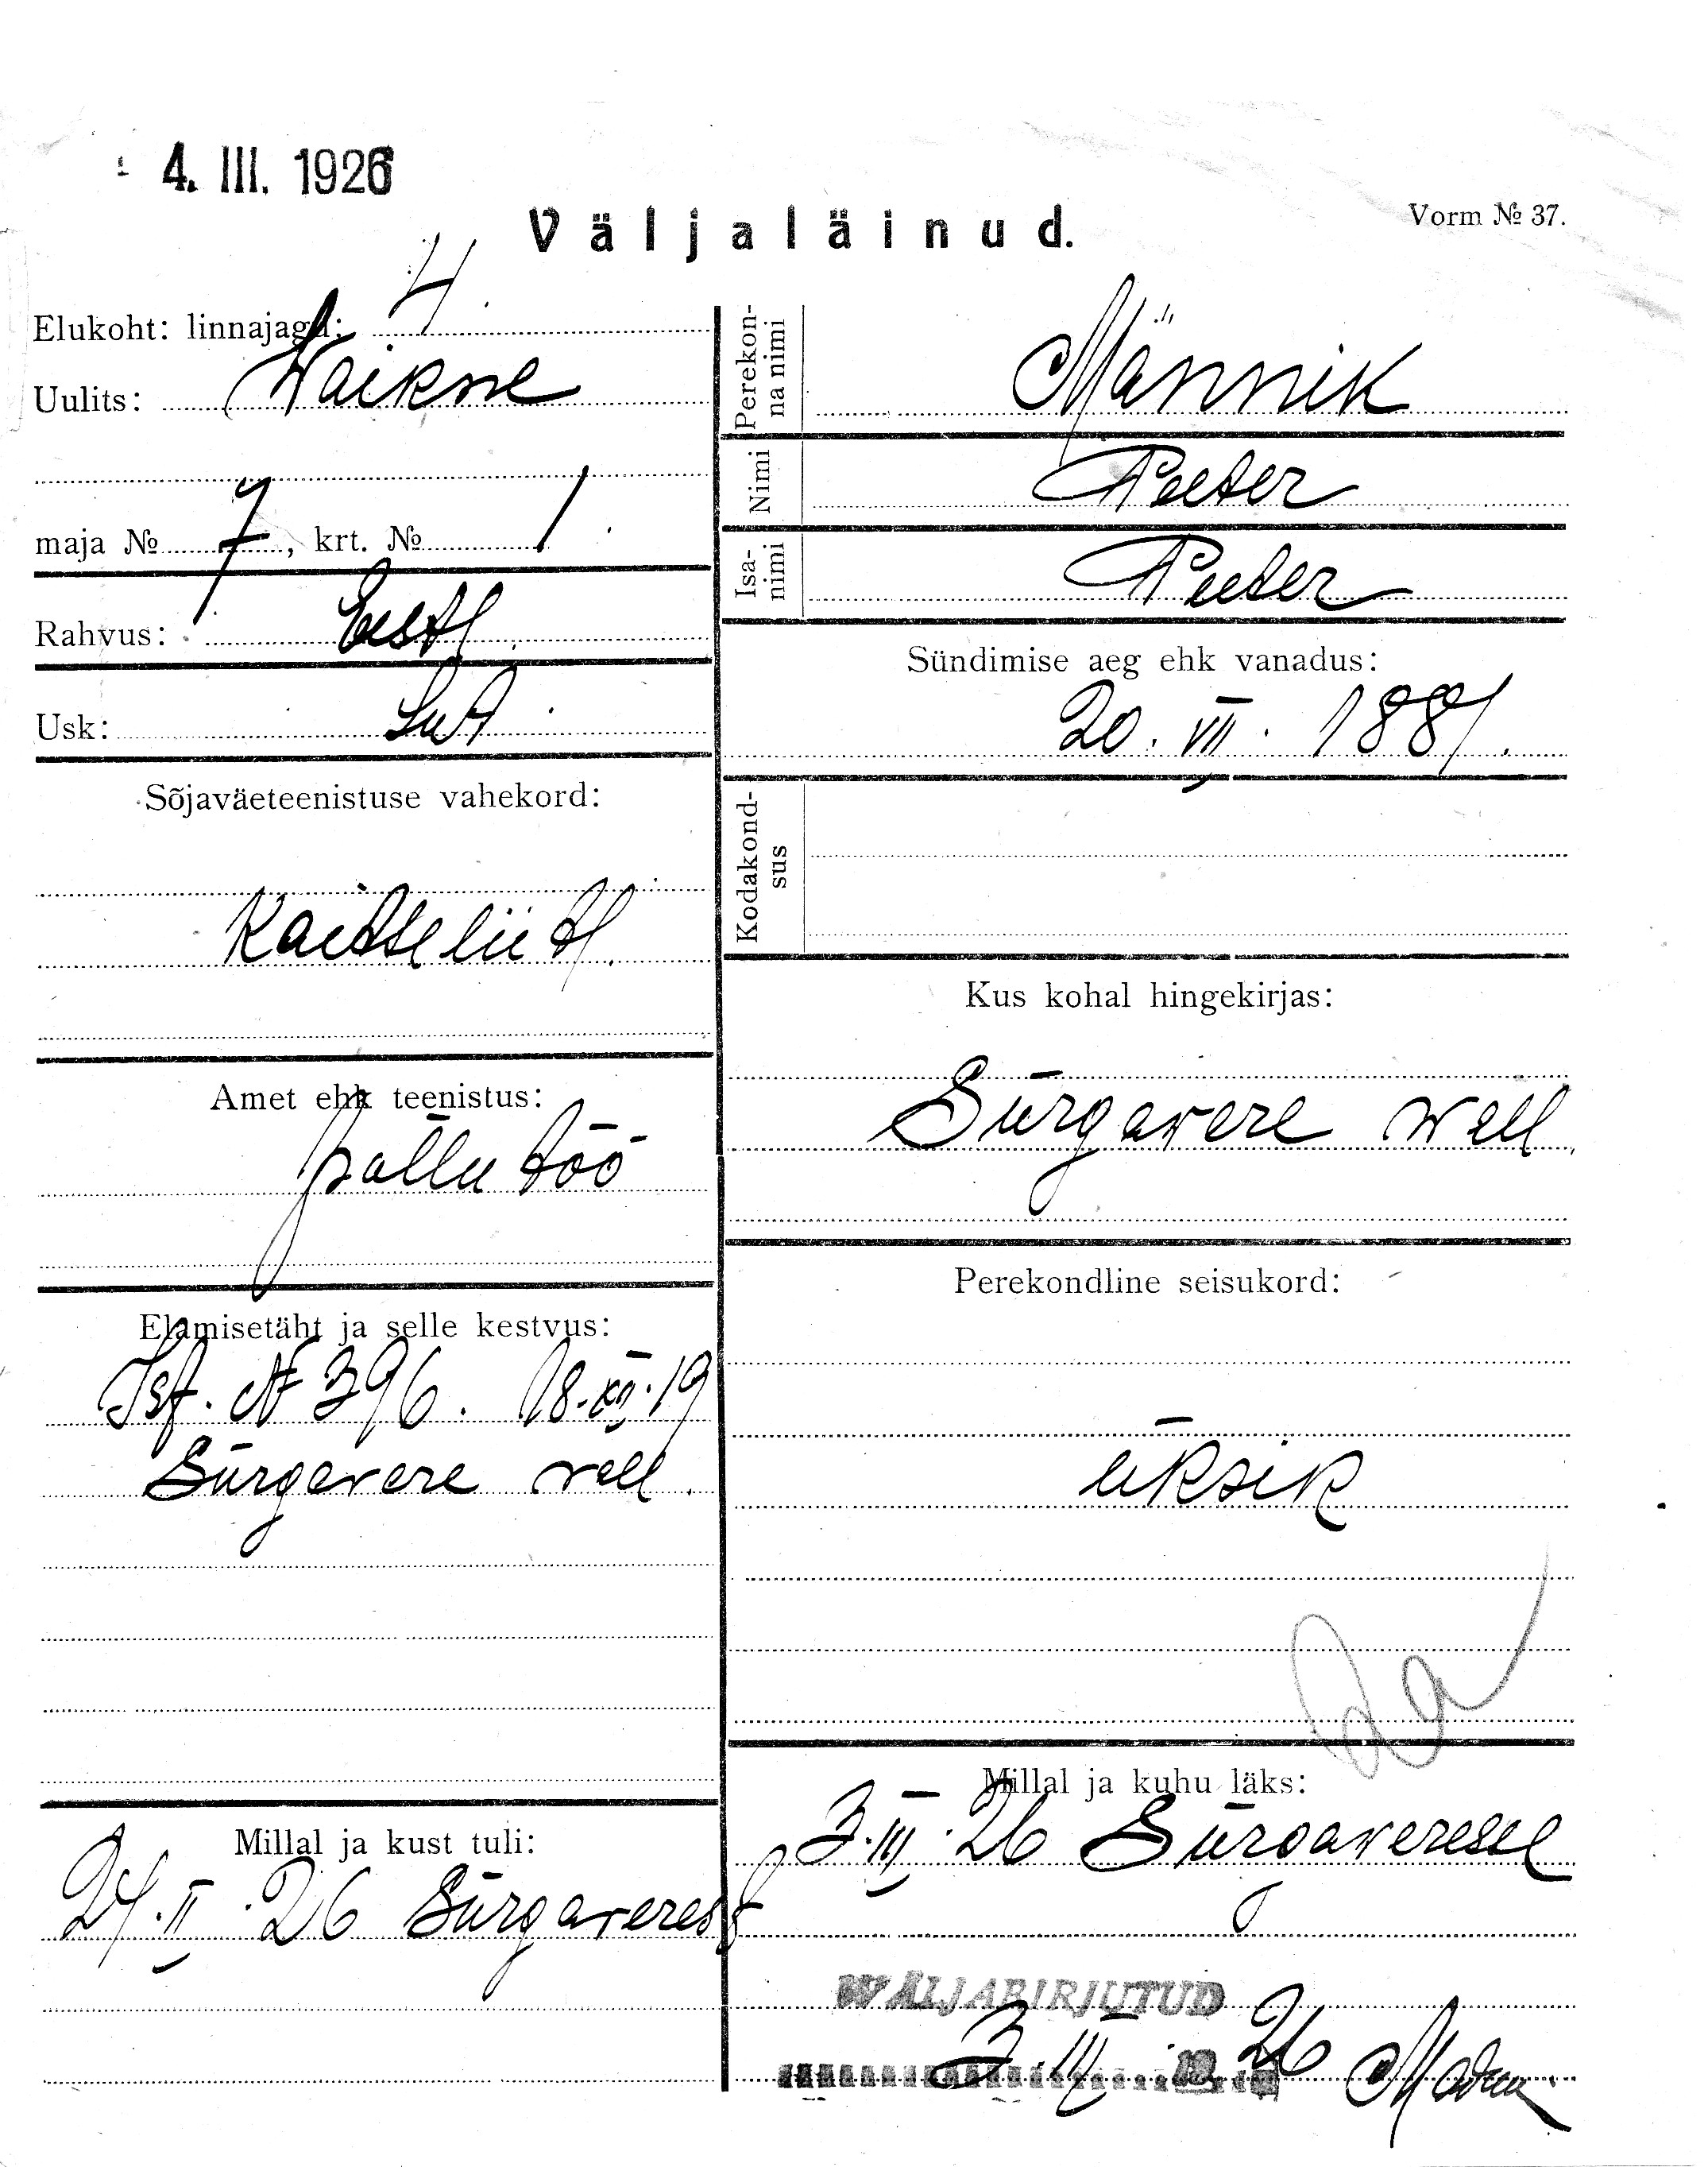 4. III. 1926
Väljaläinud.
Vorm № 37.
Elukoht: linnajagu: 4.
Uulits: Waikne
maja № 7, krt. № 1.
Rahvus: Eestl.
Usk: Lut.
Sõjaväeteenistuse vahekord:
Kaitseliitl.
Amet ehk teenistus:
põllutöö
Elamisetäht ja selle kestvus:
Ist. № 396. 18.XII.19
Sürgavere vall.
Millal ja kust tuli:
24.II.26 Sürgaverest
Perekonna nimi
Männik
Nimi
Peeter
Isanimi
Peeter
Sündimise aeg ehk vanadus:
20. VII. 1881.
Kodakondsus
Kus kohal hingekirjas:
Sürgavere vall
Perekondline seisukord:
üksik
Millal ja kuhu läks:
3.III.26 Sürgaveresse
WÄLJAKIRJUTUD
3.III.1926